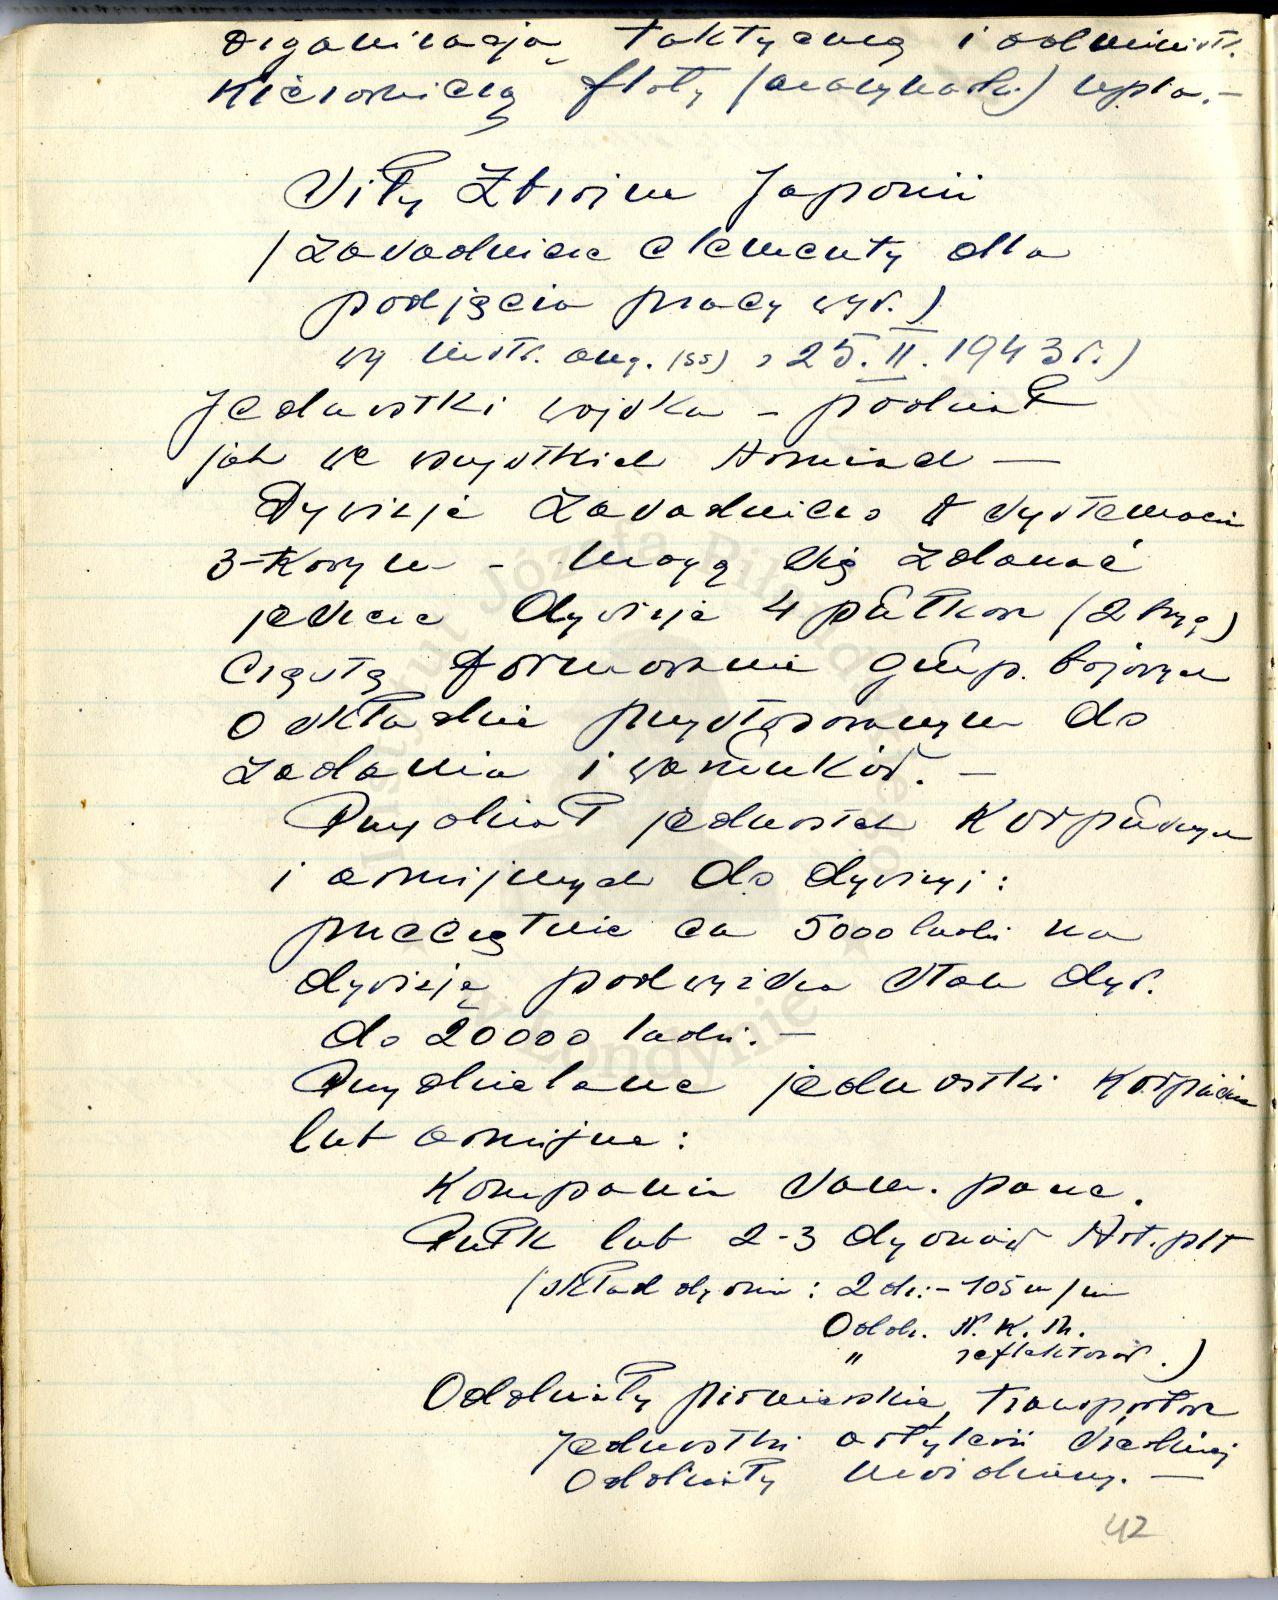 Organizację taktyczną i administr.
kierowniczą floty (marynarki) wpla.-
Siły Zbrojne Japonii
/zasadnicze elementy dla
podjęcia pracy wyw.)
wg instr. ang. (SS) z 25.II.1943 r.)
Jednostki wojska - podział
jak we wszystkich Armiach -
Dywizje zasadniczo o systemacie
3-kowym - mogą się zdarzać
jeszcze dywizje 4 pułkowe (2 bryg)
Częste formowanie grup. bojowych
o składzie przystosowanym do
zadania i warunków. -
Przydział jednostek Korpuśnych
i armijnych do dywizyj:
przeciętnie ca 5000 ludzi na
dywizję podwyższa stan dyw.
do 20000 ludzi. -
Przydzielane jednostki Korpuśne
lub armijne:
Kompania sam. panc.
Pułk lub 2-3 dyonów Art. plt
(skład dyonu: 2 dz. - 105 m/m
Oddz. N. K. M.
" reflektorów.)
Oddziały pionierskie, transportowe
jednostki artylerii średniej
Oddziały
42
Instytut Józefa Piłsudskiego
w Londynie